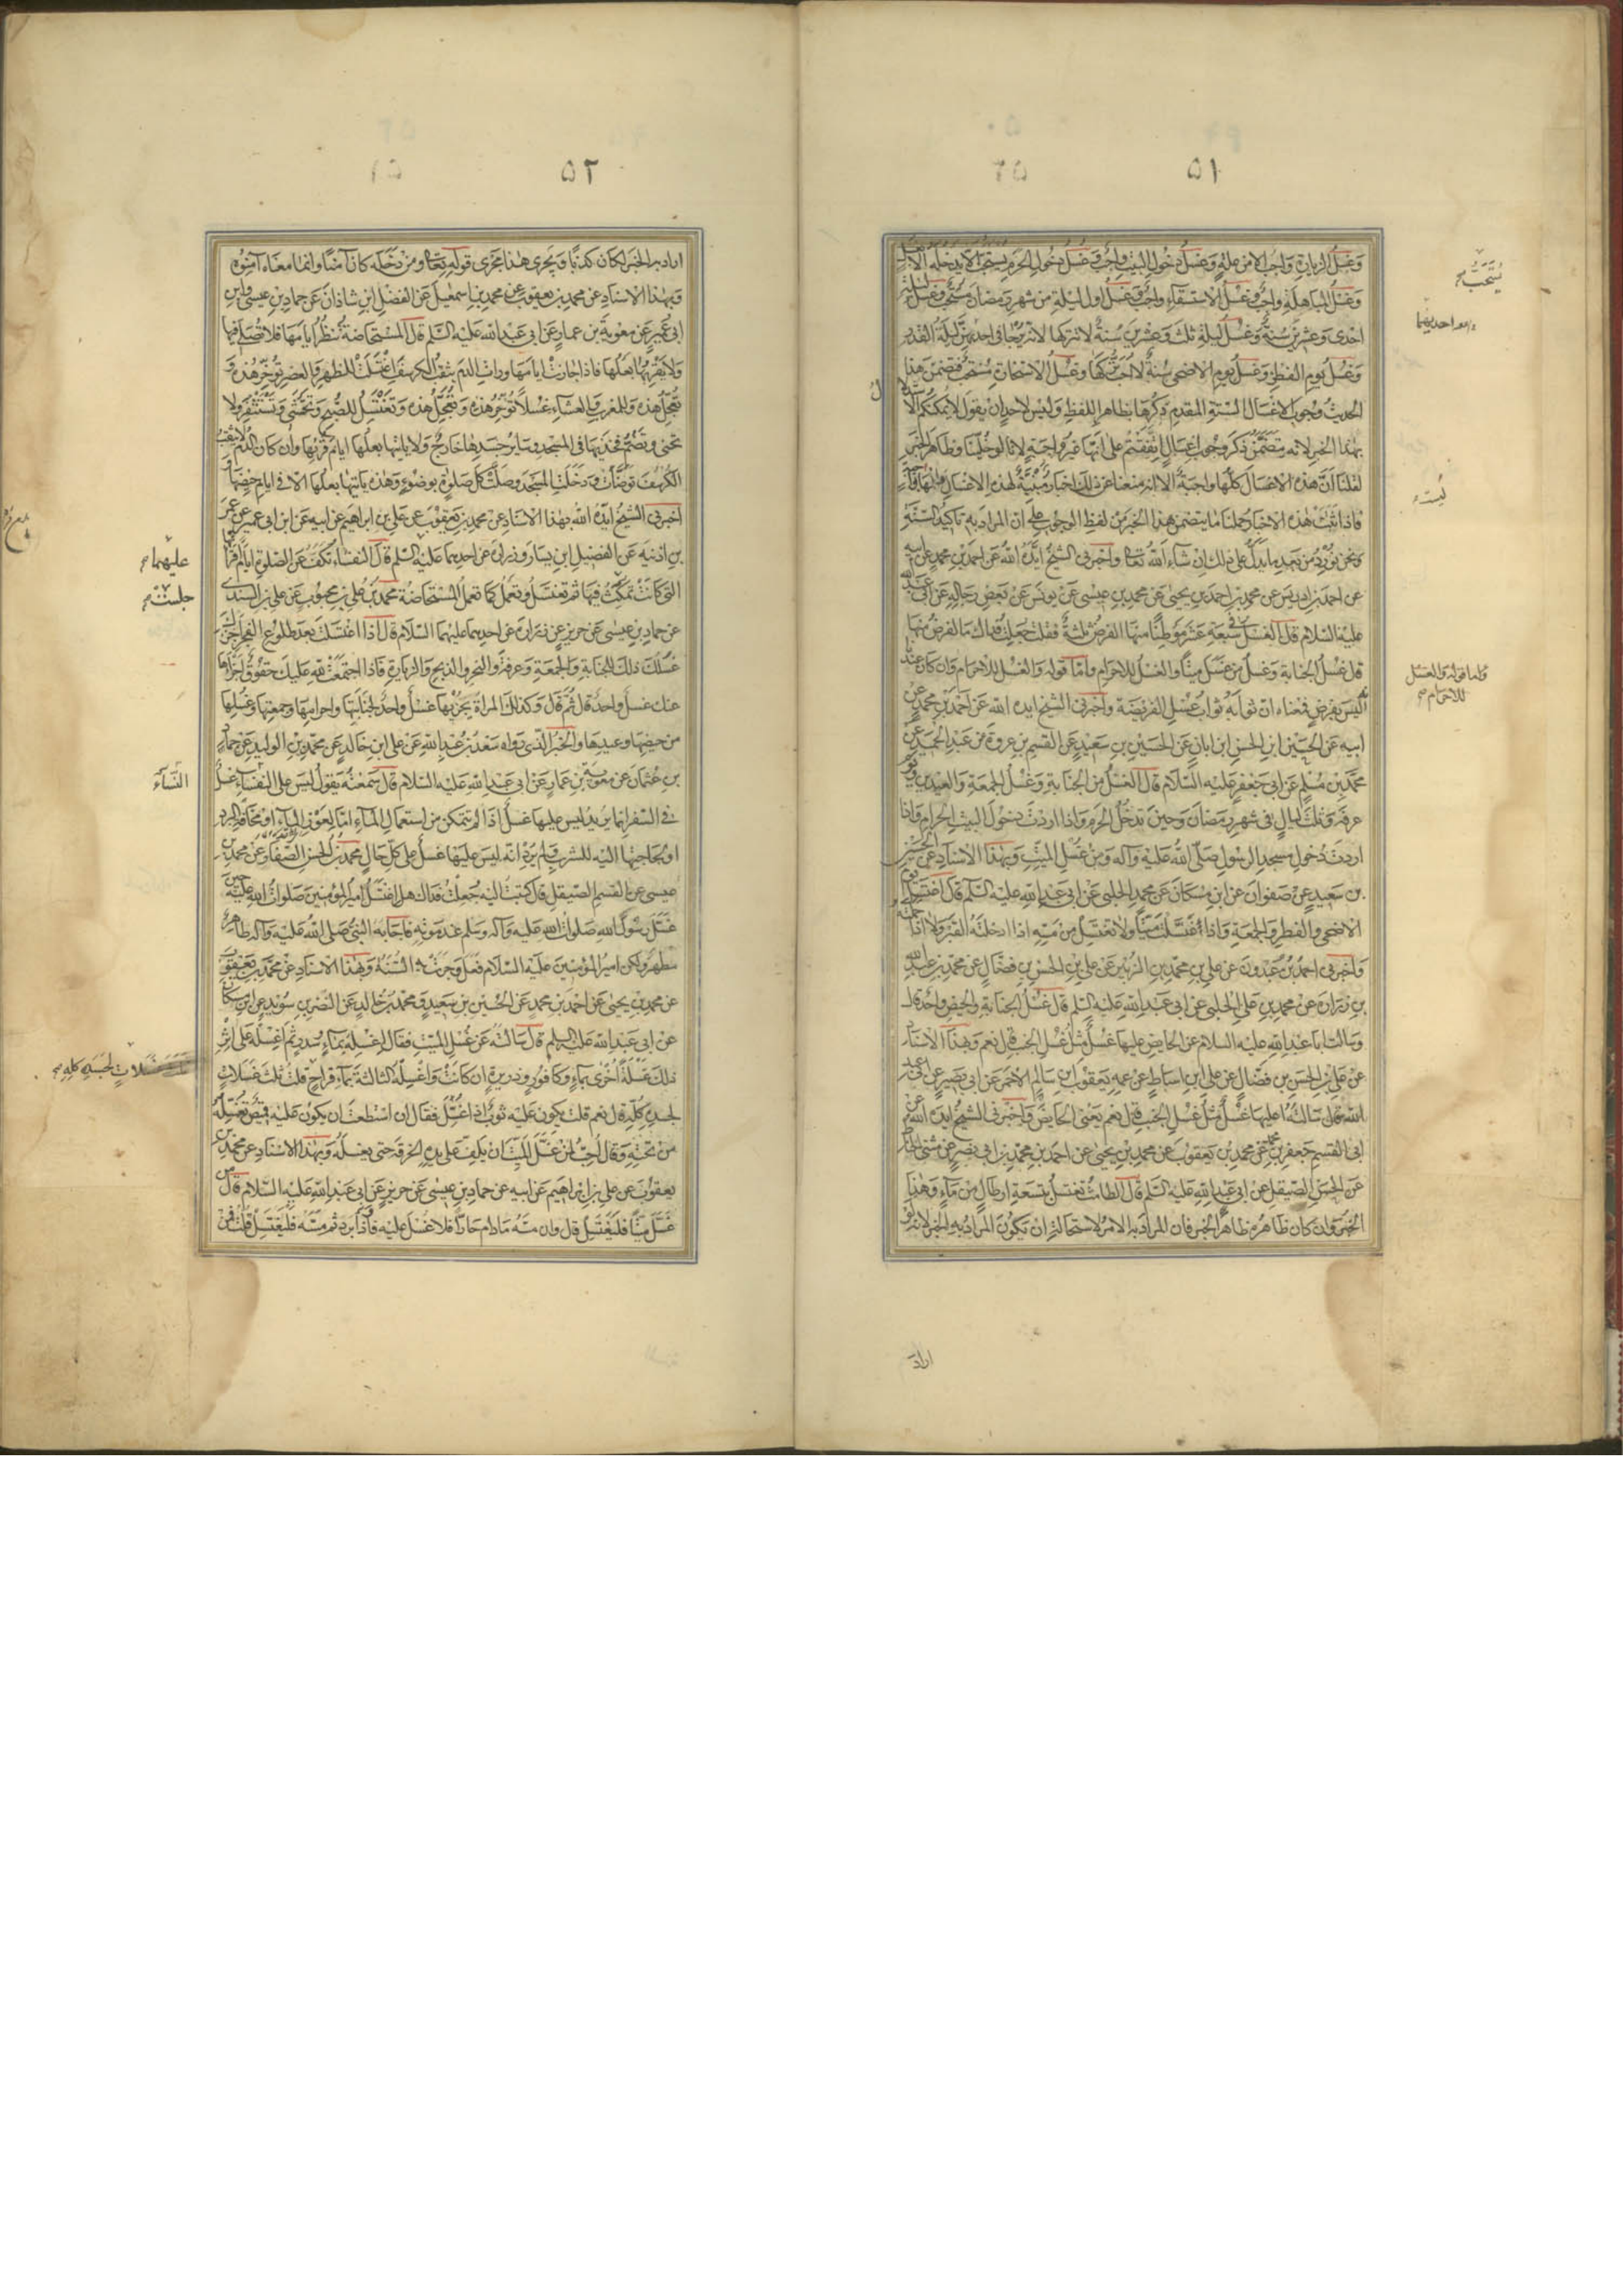 ٥١
وَغسلُ الزيارة واجبٌ الا من علة وَغسلُ دخول البيت واجبٌ وَغسلُ دخول الحرم يستحب الا يدخله الا بغسل
وَغسلُ المباهلة واجبٌ وغسلُ الاستسقاء واجبٌ وَغسلُ اول ليلة من شهر رمضان مستحب وغسل ليلة
احدى وعشرين سُنةٌ وغسلُ ليلة ثلث وعشرين سنةٌ لا تتركها لانه يُرجا في احديهن ليلة القدر
وَغسلُ يوم الفطر وَغسلُ يوم الاضحى سُنةٌ لا احبُّ تركها وغسلُ الاستخارة مُستحبٌ فتضمن هذا
الحديث وجوب الاغسال الستة المقدم ذكرها بظاهر اللفظ وليس لاحد ان يقول لا يمكنكم الاستدلال
بهذا الخبر لانه متضمن ذكر وجوب اغسال اتفقتم على انها غير واجبة لانا لو خلينا وظاهر الخبر
لقلنا ان هذه الاغسال كلها واجبة الا انه منعنا عن ذلك اخبار مُبيّنةٌ لهذه الاغسال وانها
فاذا ثبت هذه الاخبار حملنا ما يتضمن هذا الخبر من لفظ الوجوب على ان المراد به تاكيد السنة
ونحن نورد من بعد ما يدل على ذلك ان شاء الله تعالى واخبرنى الشيخ ايده الله عن احمد بن محمد عن ابيه
عن احمد بن ادريس عن محمد بن احمد بن يحيى عن محمد بن عيسى عن يونس عن بعض رجاله عن ابى عبد الله
عليه السلام قال الغسل فى سبعة عشر موطنًا منها الفرض ثلثة فقلت جعلت فداك ما الفرض منها
قال غسل الجنابة وغسل من غسل ميتًا والغسل للاحرام وامّا قوله والغسل للاحرام وان كان عندنا
انه ليس بفرض فمعناه ان ثوابه ثواب غسل الفريضة واخبرنى الشيخ ايده الله عن احمد بن محمد عن
ابيه عن الحسين ابن الحسن ابن ابان عن الحسين بن سعيد عن القسم بن عروة عن عبد الحميد عن
محمد بن مسلم عن ابى جعفر عليه السلام قال الغسل من الجنابة وغسل الجمعة والعيدين ويوم
عرفة وثلث ليال فى شهر رمضان وحين تدخل الحرم واذا اردت دخول البيت الحرام واذا
اردت دخول مسجد الرسول صلى الله عليه وآله ومن غسل الميت وبهذا الاسناد عن الحسين
بن سعيد عن صفوان عن ابن مسكان عن محمد الحلبى عن ابى عبد الله عليه السلم قال اغتسل يوم
الاضحى والفطر والجمعة واذا غسلت ميتًا ولا تغتسل من مسّه اذا ادخلته القبر ولا اذا حملته
واخبرنى احمد بن عبدون عن على بن محمد بن الزبير عن على بن الحسن بن فضال عن محمد بن عبد الله
بن زرارة عن محمد بن على الحلبى عن ابى عبد الله عليه السلم قال غسل الجنابة والحيض واحد قال
وسالت ابا عبد الله عليه السلام عن الحايض عليها غسل مثل غسل الجنب قال نعم وبهذا الاسناد
عن على بن الحسن بن فضال عن على ابن اسباط عن عمه يعقوب ابن سالم الاحمر عن ابى بصير عن ابى عبد
الله قال سالته اعليها غسل مثل غسل الجنب قال نعم يعنى الحايض واخبرنى الشيخ ايده الله عن
ابى القسم جعفر بن محمد عن محمد بن يعقوب عن محمد بن يحيى عن احمد بن محمد بن ابى نصر عن مثنى الحناط
عن الحسن الصيقل عن ابى عبد الله عليه السلم قال الطامث تغتسل بتسعة ارطال من مآء وهذا
الخبر وان كان ظاهره ظاهر الخبر فان المراد به الامر لاستحالة ان يكون المراد به الخبر لانه لو
اراد
يُستحَبُّ صح
احديهما
ليست
واما قوله والغسل
للاحرام صح
٥٢
اراد به الخبر لكان كذبًا ويجرى هذا مجرى قوله تعالى ومن دخله كان آمنًا وانما معناه آمنوه
وبهذا الاسناد عن محمد بن يعقوب عن محمد بن اسمعيل عن الفضل ابن شاذان عن حماد بن عيسى وابن
ابى عمير عن معوية بن عمار عن ابى عبد الله عليه السلم قال المستحاضة تنظر ايامها فلا تصلى فيها
ولا يقربها بعلها فاذا جازت ايامها ورات الدم يثقب الكرسف اغتسلت للظهر والعصر تؤخر هذه و
تعجل هذه وللمغرب والعشاء غسلاً تؤخر هذه وتعجل هذه وتغتسل للصبح وتحتشى وتستثفر ولا
تحنى وتضم فخذيها فى المسجد وساير جسدها خارج ولا ياتيها بعلها ايام قرئها وان كان الدم لا يثقب
الكرسف توضات ودخلت المسجد وصلت كل صلوة بوضوء وهذه ياتيها بعلها الا فى ايام حيضها
اخبرنى الشيخ ايده الله بهذا الاسناد عن محمد بن يعقوب عن على بن ابراهيم عن ابيه عن ابن ابى عمير عن عمر
بن اذينة عن الفضيل ابن يسار وزرارة عن احدهما عليه السلم قال النفساء تكف عن الصلوة ايام اقرائها
التى كانت تمكث فيها ثم تغتسل وتعمل كما تعمل المستحاضة محمد بن على بن محبوب عن على بن السندى
عن حماد بن عيسى عن حريز عن زرارة عن احدهما عليهما السلام قال اذا اغتسلت بعد طلوع الفجر اجزاك
غسلك ذلك للجنابة والجمعة وعرفة والنحر والذبح والزيارة فاذا اجتمعت لله عليك حقوق اجزاها
عنك غسل واحد قال ثم قال وكذلك المراة يجزيها غسل واحد لجنابتها واحرامها وجمعتها وغسلها
من حيضها وعيدها والخبر الذى رواه سعد بن عبد الله عن على ابن خالد عن محمد بن الوليد عن حماد
بن عثمان عن معوية بن عمار عن ابى عبد الله عليه السلام قال سمعته يقول ليس على النفساء غسل
فى السفر انما يريد ليس عليها غسل اذا لم تتمكن من استعمال المآء امّا لعوز المآء او مخافة البرد
او لحاجتها اليه للشرب ولم يرد انه ليس عليها غسل على كل حال محمد بن الحسن الصفار عن محمد بن
عيسى عن القسم الصيقل قال كتبت اليه جعلت فداك هل اغتسل امير المؤمنين صلوات الله عليه حين
غسّل رسول الله صلوات الله عليه وآله وسلم عند موته فاجابه النبى صلى الله عليه وآله طاهر
مطهر ولكن امير المؤمنين عليه السلام فعل وجرت به السنة وبهذا الاسناد عن محمد بن يعقوب
عن محمد بن يحيى عن احمد بن محمد عن الحسين بن سعيد ومحمد بن خالد عن النضر بن سويد عن ابن مسكان
عن ابى عبد الله عليه السلم قال سالته عن غسل الميت فقال اغسله بماء وسدر ثم اغسله على اثر
ذلك غسلة اخرى بماء وكافور وذريرة ان كانت واغسله الثالثة بماء قراح قلت ثلث غسلات
لجسده كله قال نعم قلت يكون عليه ثوب اذا غسّل فقال ان استطعت ان يكون عليه قميص تغسله
من تحته وقال احبّ لمن غسّل الميت ان يلف على يده الخرقة حتى يغسله وبهذا الاسناد عن محمد بن
يعقوب عن على بن ابراهيم عن ابيه عن حماد بن عيسى عن حريز عن ابى عبد الله عليه السلام قال من
غسّل ميتًا فليغتسل قال وان مسّه مادام حارًا فلا غسل عليه فاذا برد ثم مسّه فليغتسل قلت فمن
عليهما صح
جلست صح
النسآء
غسلات لجسده كله صح